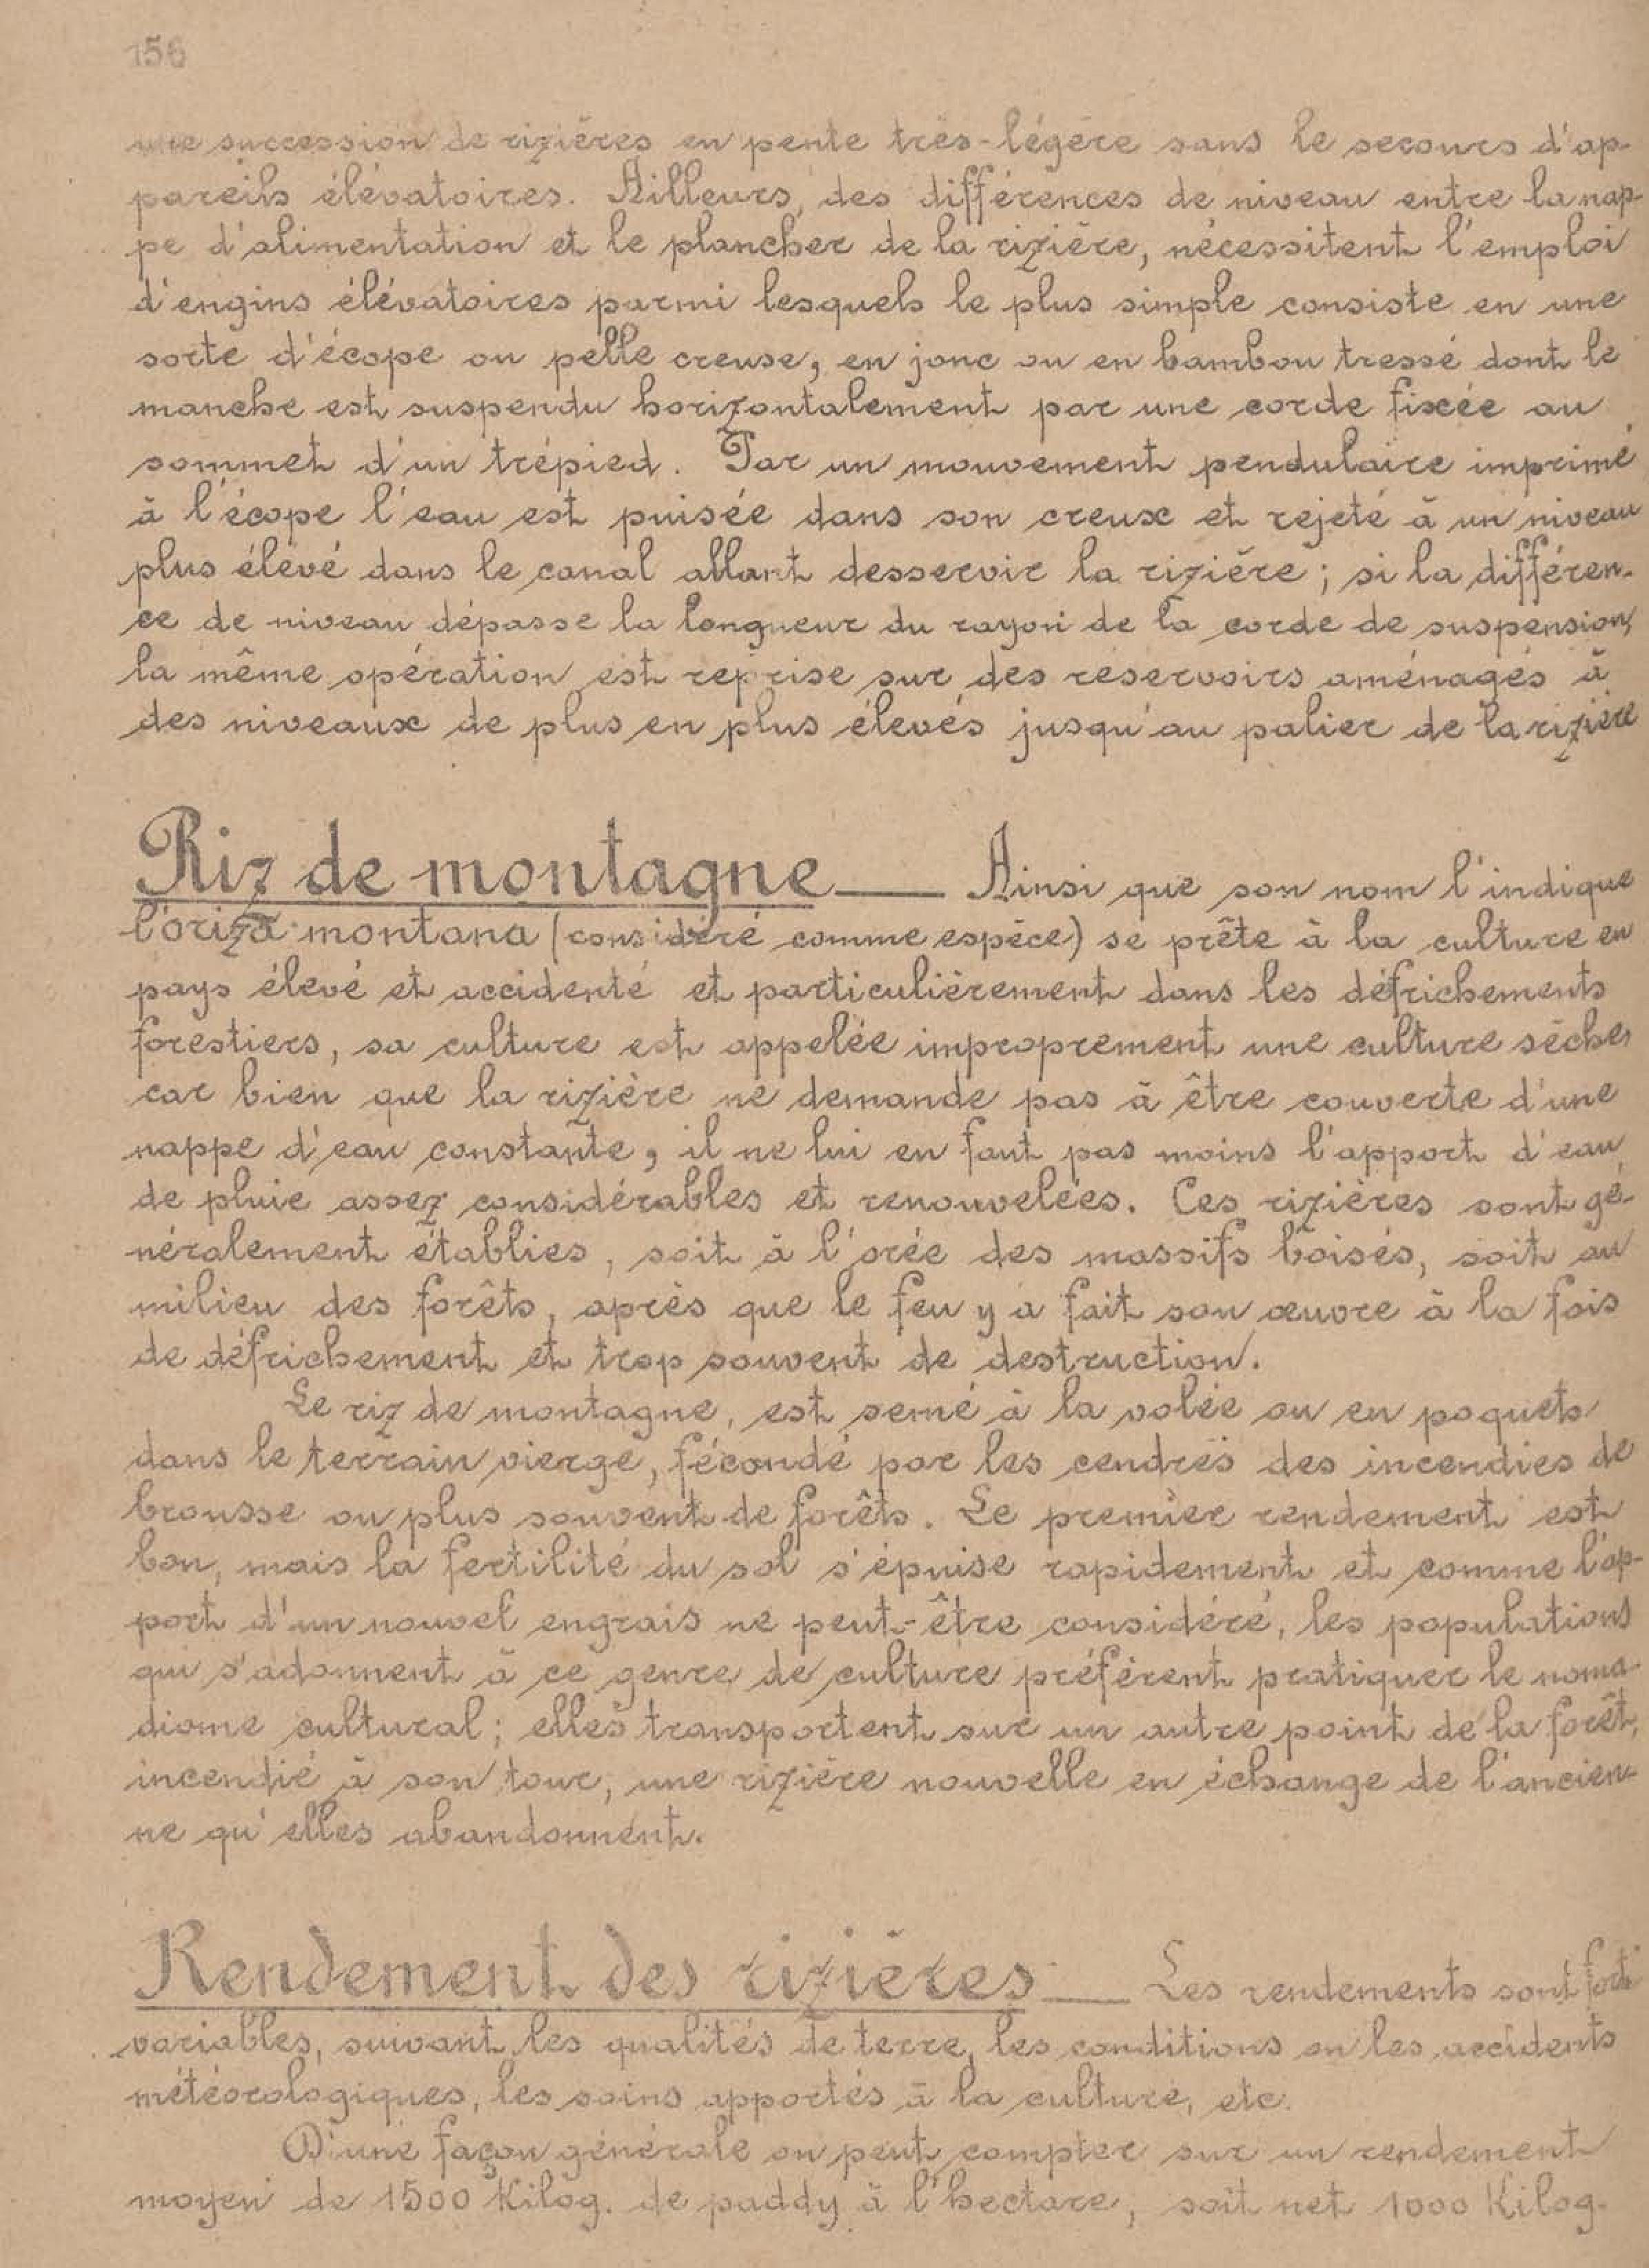 156
une succession de rizières en pente très-légère sans le secours d'ap-
pareils élévatoires. Ailleurs, des différences de niveau entre la nap-
pe d'alimentation et le plancher de la rizière, nécessitent l'emploi
d'engins élévatoires parmi lesquels le plus simple consiste en une
sorte d'écope ou pelle creuse, en jonc ou en bambou tressé dont le
manche est suspendu horizontalement par une corde fixée au
sommet d'un trépied. Par un mouvement pendulaire imprimé
à l'écope l'eau est puisée dans son creux et rejeté à un niveau
plus élevé dans le canal allant desservir la rizière ; si la différen-
ce de niveau dépasse la longueur du rayon de la corde de suspension,
la même opération est reprise sur des réservoirs aménagés à
des niveaux de plus en plus élevés jusqu'au palier de la rizière
Riz de montagne — Ainsi que son nom l'indique
l'oriza montana (considéré comme espèce) se prête à la culture en
pays élevé et accidenté et particulièrement dans les défrichements
forestiers, sa culture est appelée improprement une culture sèche,
car bien que la rizière ne demande pas à être couverte d'une
nappe d'eau constante, il ne lui en faut pas moins l'apport d'eau
de pluie assez considérables et renouvelées. Ces rizières sont gé-
néralement établies, soit à l'orée des massifs boisés, soit au
milieu des forêts, après que le feu y a fait son œuvre à la fois
de défrichement et trop souvent de destruction.
Le riz de montagne, est semé à la volée ou en poquets
dans le terrain vierge, fécondé par les cendres des incendies de
brousse ou plus souvent de forêts. Le premier rendement est
bon, mais la fertilité du sol s'épuise rapidement et comme l'ap-
port d'un nouvel engrais ne peut-être considéré, les populations
qui s'adonnent à ce genre de culture préfèrent pratiquer le noma-
disme cultural ; elles transportent sur un autre point de la forêt,
incendié à son tour, une rizière nouvelle en échange de l'ancien-
ne qu'elles abandonnent.
Rendement des rizières — Les rendements sont fort
variables, suivant les qualités de terre, les conditions ou les accidents
météorologiques, les soins apportés à la culture, etc.
D'une façon générale on peut compter sur un rendement
moyen de 1500 Kilog. de paddy à l'hectare, soit net 1000 Kilog.